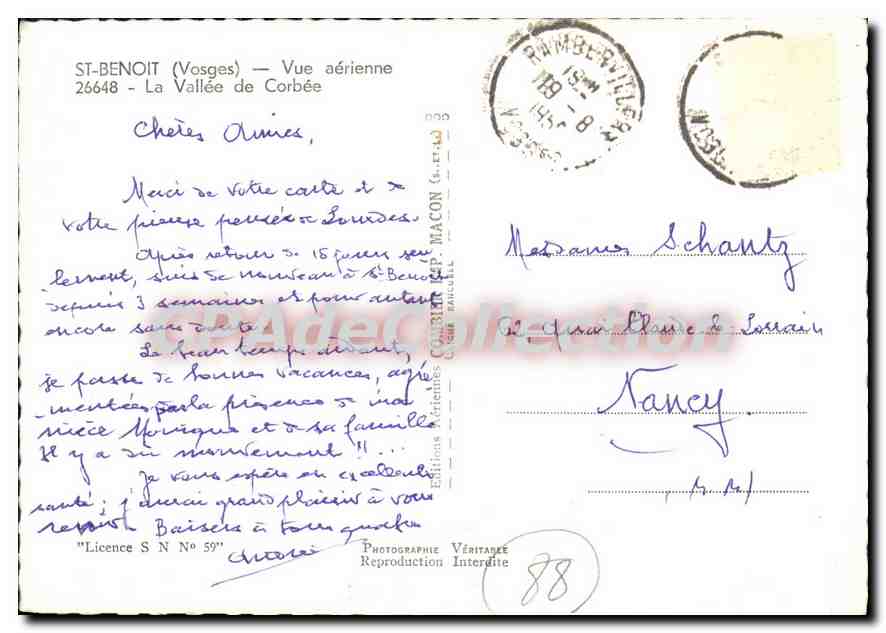 ST-BENOIT (Vosges) — Vue aérienne
26648 - La Vallée de Corbée
Chères Amies,
Merci de votre carte et de
votre pieuse pensée de Lourdes.
Après retour de 15 jours seu
lement, suis de nouveau à St-Benoît
depuis 3 semaines et pour autant
encore sans doute.
Le beau temps aidant,
je passe de bonnes vacances, agré
mentées par la présence de ma
nièce Monique et de sa famille
Il y a du mouvement !! ...
Je vous espère en excellente
santé ; j'aurai grand plaisir à vous
revoir. Baisers à tous quatre
"Licence S N Nº 59"
PHOTOGRAPHIE VÉRITABLE
Reproduction Interdite
Editions Aériennes COMBIER IMP. MACON (S.-ET-L.)
RAMBERVILLERS
VOSGES
19 - 8
VOSGES
Mesdames Schantz
62, quai Claude le Lorrain
Nancy
(M. M)
88
CPAdeCollection